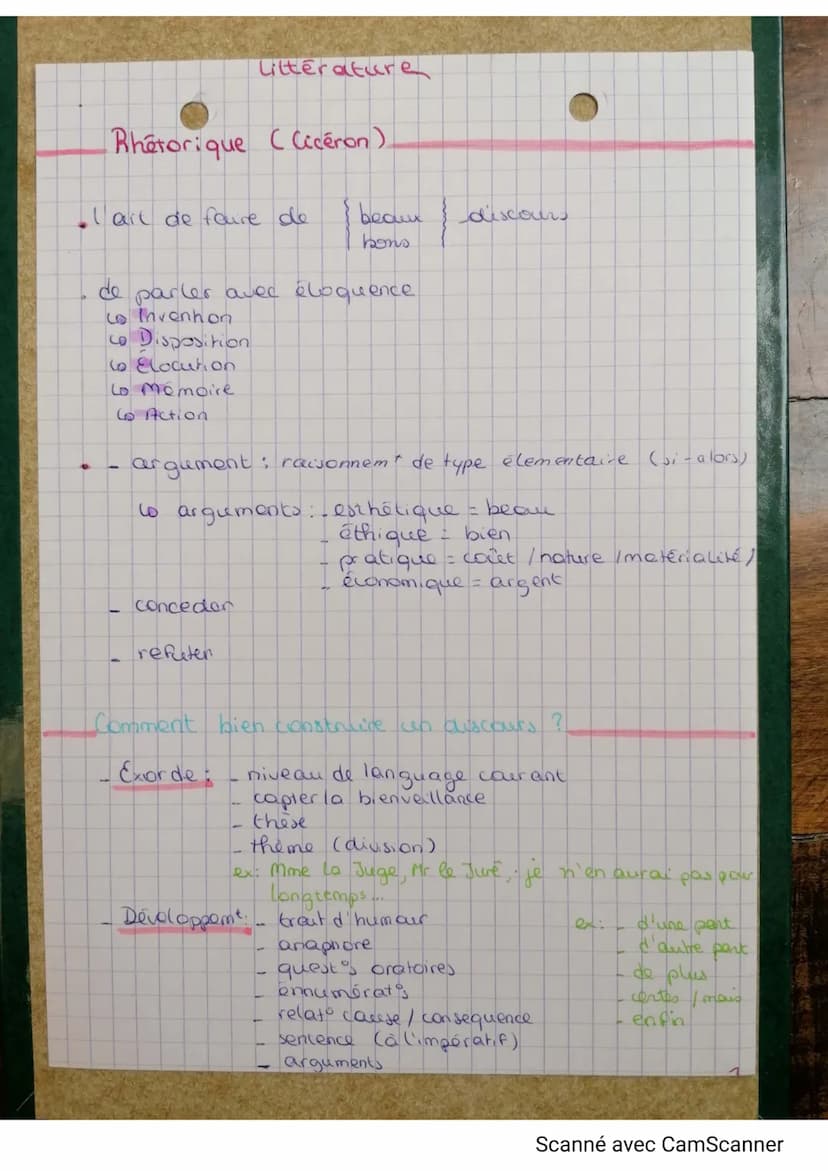 Littérature
Rhétorique (Cicéron)
. l'art de faire de { beaux } discours
bons
. de parler avec éloquence
↳ Invention
↳ Disposition
↳ Élocution
↳ Mémoire
↳ Action
• - argument : raisonnemt de type élementaire (si-alors)
↳ arguments : - esthétique = beau
- éthique = bien
- pratique = coût / nature / matérialité /
- économique = argent
- conceder
- refuter
Comment bien construire un discours ?
- Exorde : - niveau de language courant
- capter la bienveillance
- thèse
- thème (division)
ex: Mme La Juge, Mr le Juré, je n'en aurai pas pour
longtemps...
- Développemt : - trait d'humour ex: - d'une part
- anaphore - d'autre part
- quest°s oratoires - de plus
- énnumérat°s - certes / mais
- relat° cause / consequence - enfin
- sentence (à l'impératif)
- arguments
1
Scanné avec CamScanner